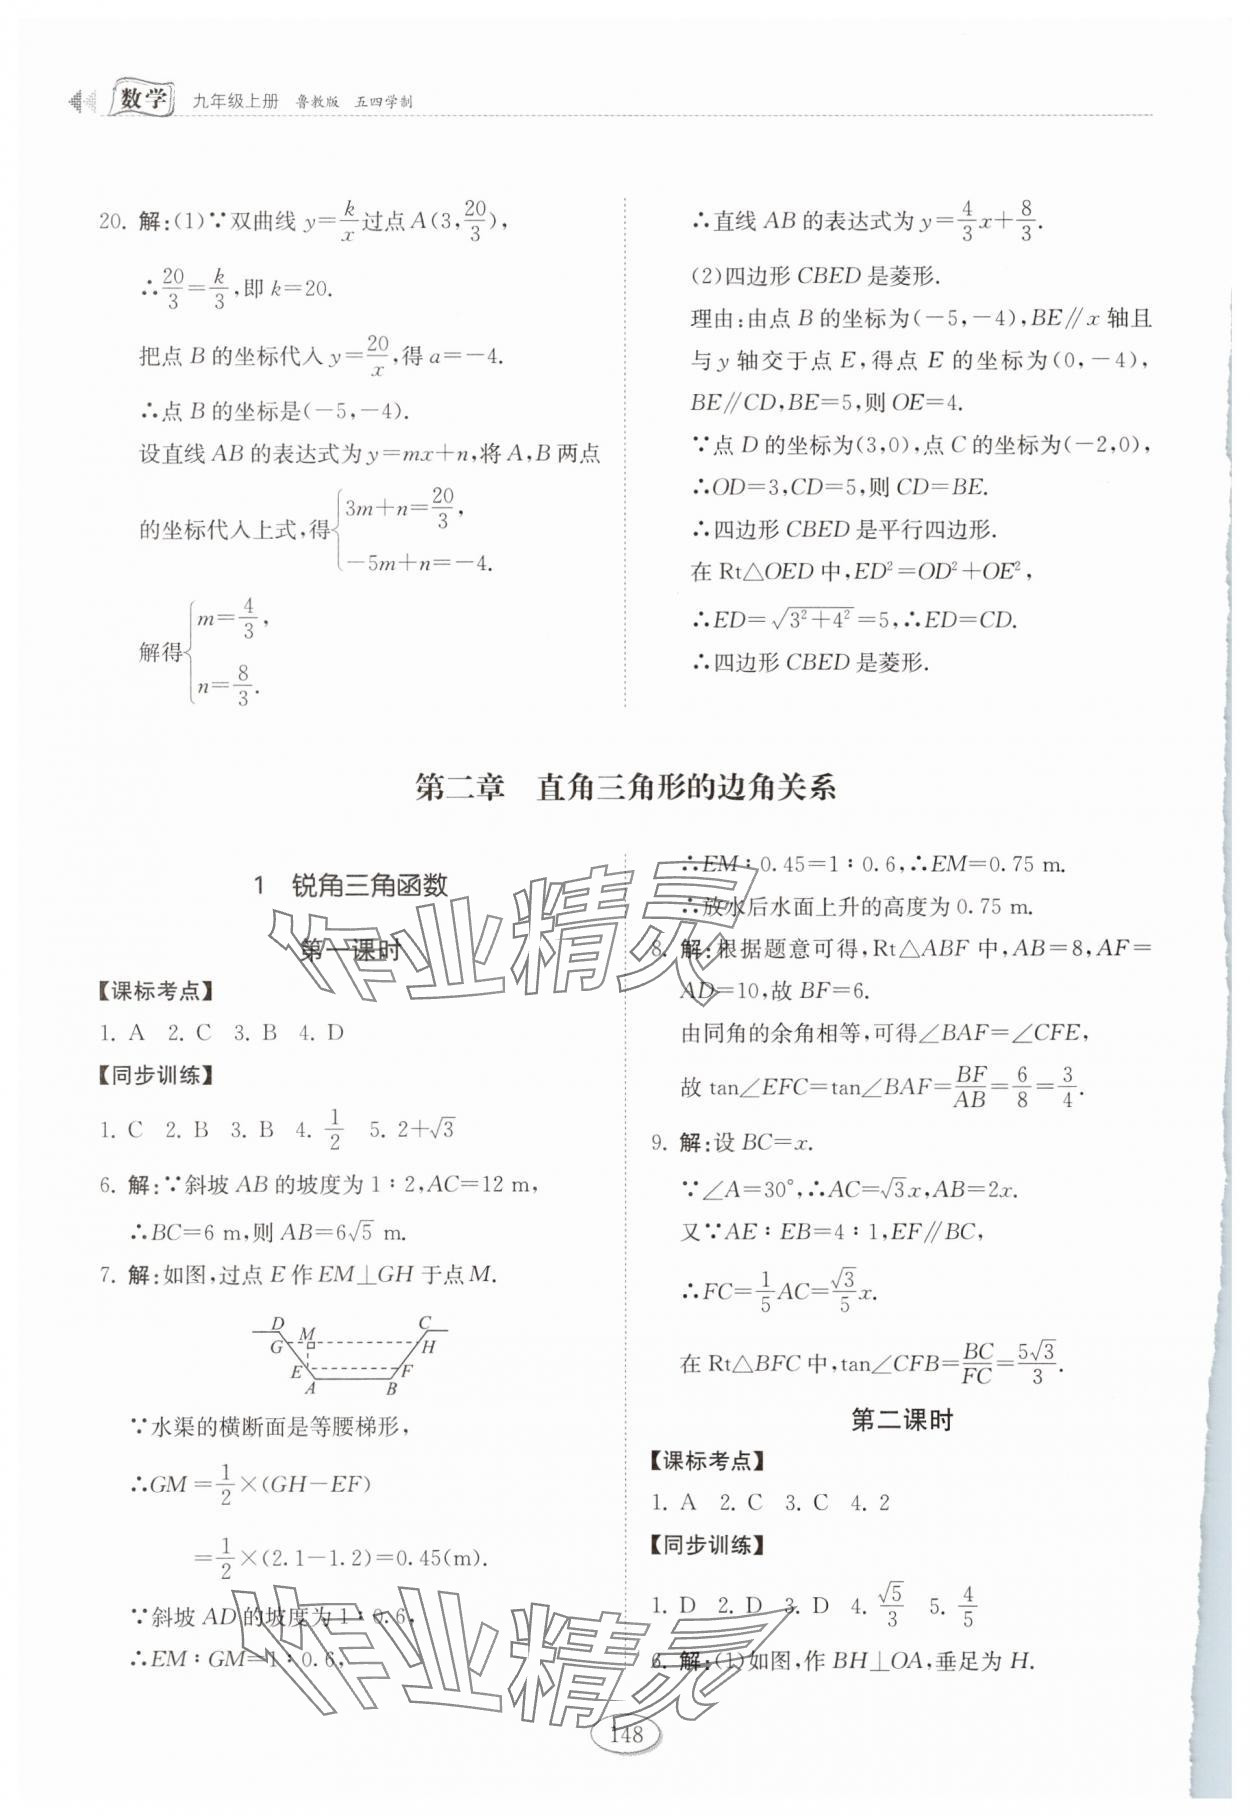 数学 九年级上册 鲁教版 五四学制
20. 解:(1)∵双曲线 y=k/x 过点 A(3,20/3),
∴20/3=k/3,即 k=20.
把点 B 的坐标代入 y=20/x,得 a=-4.
∴点 B 的坐标是(-5,-4).
设直线 AB 的表达式为 y=mx+n,将 A,B 两点
的坐标代入上式,得{3m+n=20/3,
-5m+n=-4.
解得{m=4/3,
n=8/3.
∴直线 AB 的表达式为 y=4/3x+8/3.
(2)四边形 CBED 是菱形.
理由:由点 B 的坐标为(-5,-4),BE∥x 轴且
与 y 轴交于点 E,得点 E 的坐标为(0,-4),
BE∥CD,BE=5,则 OE=4.
∵点 D 的坐标为(3,0),点 C 的坐标为(-2,0),
∴OD=3,CD=5,则 CD=BE.
∴四边形 CBED 是平行四边形.
在 Rt△OED 中,ED²=OD²+OE²,
∴ED=√(3²+4²)=5,∴ED=CD.
∴四边形 CBED 是菱形.
第二章 直角三角形的边角关系
1 锐角三角函数
第一课时
【课标考点】
1. A 2. C 3. B 4. D
【同步训练】
1. C 2. B 3. B 4. 1/2 5. 2+√3
6. 解:∵斜坡 AB 的坡度为 1∶2,AC=12 m,
∴BC=6 m,则 AB=6√5 m.
7. 解:如图,过点 E 作 EM⊥GH 于点 M.
D M C
G H
E F
A B
∵水渠的横断面是等腰梯形,
∴GM=1/2×(GH-EF)
=1/2×(2.1-1.2)=0.45(m).
∵斜坡 AD 的坡度为 1∶0.6,
∴EM∶GM=1∶0.6,
∴EM∶0.45=1∶0.6,∴EM=0.75 m.
∴放水后水面上升的高度为 0.75 m.
8. 解:根据题意可得,Rt△ABF 中,AB=8,AF=
AD=10,故 BF=6.
由同角的余角相等,可得∠BAF=∠CFE,
故 tan∠EFC=tan∠BAF=BF/AB=6/8=3/4.
9. 解:设 BC=x.
∵∠A=30°,∴AC=√3x,AB=2x.
又∵AE∶EB=4∶1,EF∥BC,
∴FC=1/5AC=√3/5x.
在 Rt△BFC 中,tan∠CFB=BC/FC=5√3/3.
第二课时
【课标考点】
1. A 2. C 3. C 4. 2
【同步训练】
1. D 2. D 3. D 4. √5/3 5. 4/5
6. 解:(1)如图,作 BH⊥OA,垂足为 H.
148
作业精灵
作业精灵